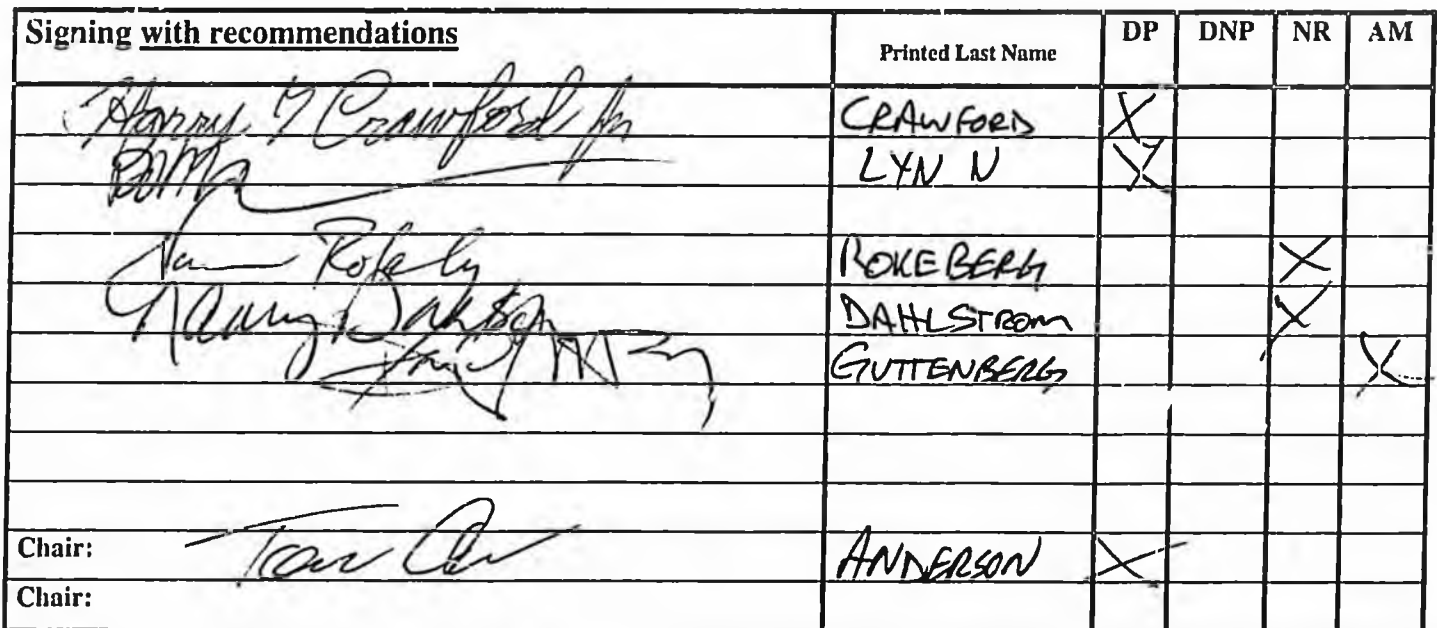 Signing with recommendations Printed Last Name DP DNP NR AM
Harry T Crawford Jr CRAWFORD X
LYN N X
Rokeberg ROKEBERG X
Nancy Dahlstrom DAHLSTROM X
GUTTENBERG X
Chair: Tom ANDERSON X
Chair: